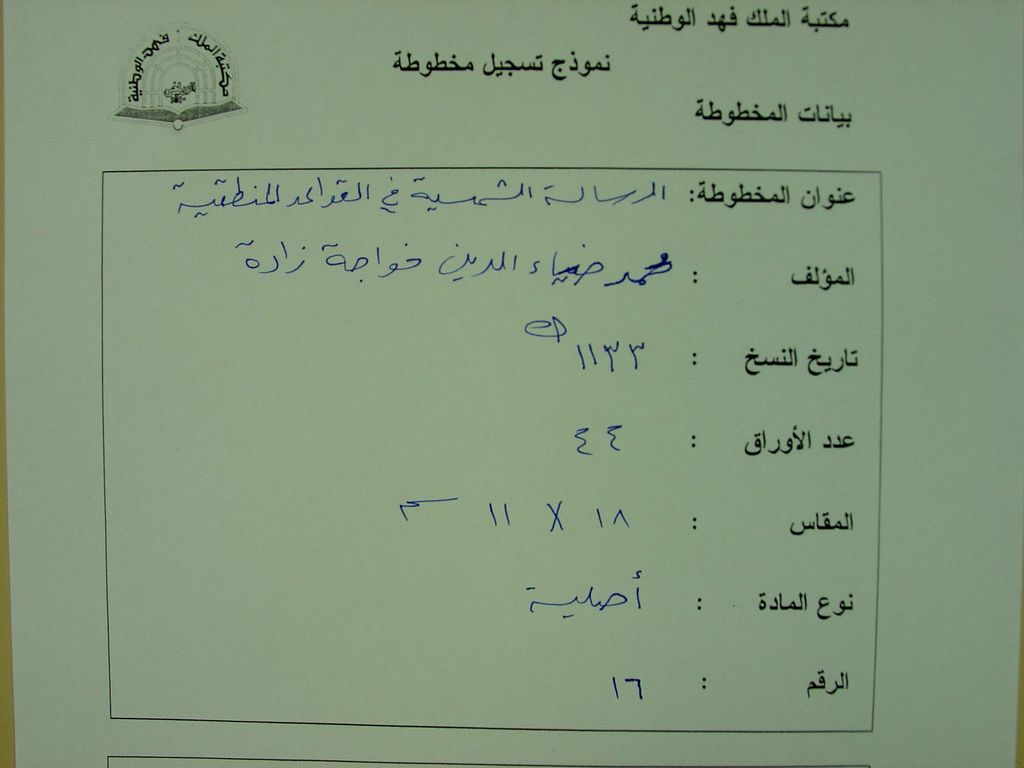 مكتبة الملك فهد الوطنية
مكتبة الملك فهد الوطنية
الرياض
نموذج تسجيل مخطوطة
بيانات المخطوطة
عنوان المخطوطة: الرسالة الشمسية في القواعد المنطقية
المؤلف : محمد ضياء الدين خواجة زادة
تاريخ النسخ : ١١٣٣ هـ
عدد الأوراق : ٤٤
المقاس : ١٨ X ١١ سم
نوع المادة : أصلية
الرقم : ١٦